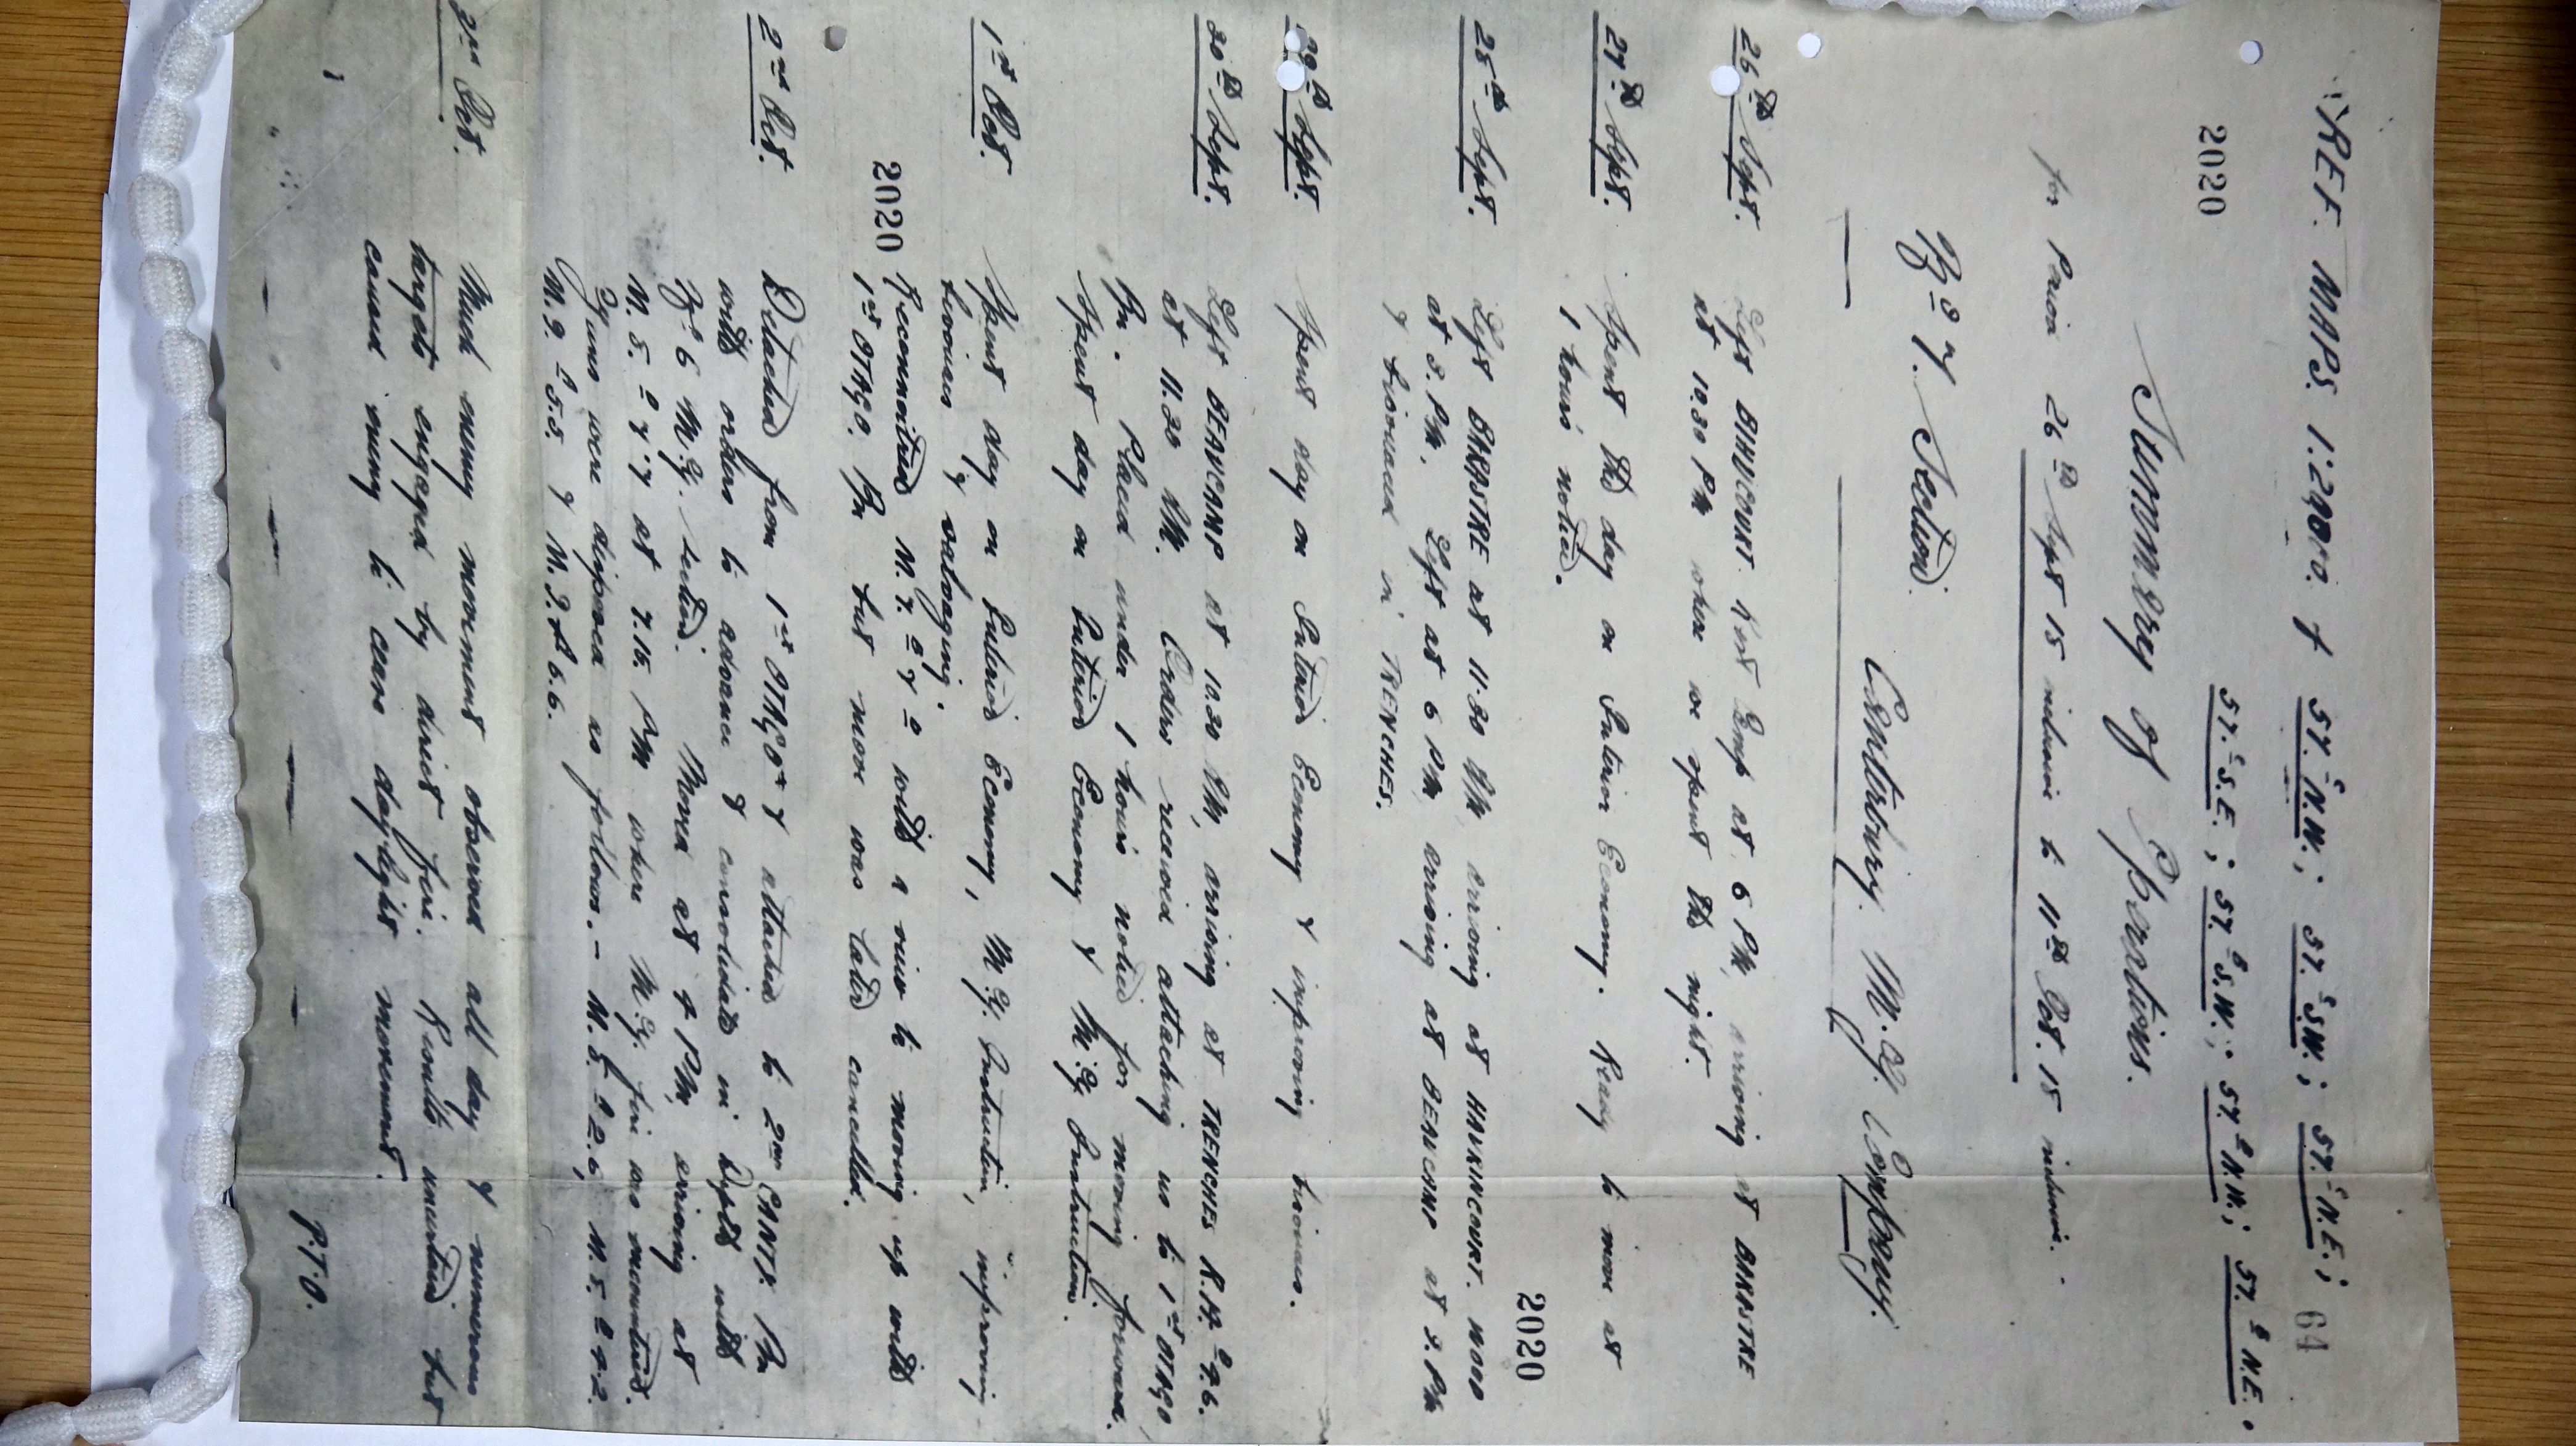 REF. MAPS. 1:20,000. f 57.c N.W.; 57.c S.W.; 57.c N.E.; 64
2020 57.c S.E.; 57.B S.W.; 57.B N.W.; 57.B N.E.
Summary of Operations.
for Period 26th Sept 18 inclusive to 11th Oct. 18 inclusive.
No 7. Section. Canterbury. M.G. Company.
26th Sept. Left BIHUCOURT Rest Camp at 6 PM arriving at BARASTRE
at 10.30 PM where we spent the night.
27th Sept. Spent the day on Interior Economy. Ready to move at
1 hours notice.
2020
28th Sept. Left BARASTRE at 11.30 AM arriving at HAVRINCOURT. WOOD
at 3. PM. Left at 6 PM arriving at BEAUCAMP at 9. PM
& bivouaced in TRENCHES.
29th Sept. Spent day on Interior Economy & improving bivouacs.
30th Sept. Left BEAUCAMP at 10.30 AM, arriving at TRENCHES R.14. 9.6.
at 11.30 AM. Orders received attaching us to 1st OTAGO
Bn. Placed under 1 hours notice for moving forward.
Spent day on Interior Economy & M.G. Instruction.
1st Oct. Spent day on Interior Economy, M.G. Instruction, improving
bivouacs & salvaging.
Reconnoitred M.7. with a view to moving up with
2020 1st OTAGO. Bn but move was later cancelled.
2nd Oct. Detached from 1st OTAGO & attached to 2nd CANTY. Bn
with orders to advance & consolidate in Depth with
No 6 M.G. Section. Moved at 4 PM, arriving at
M.5. at 7.15 PM where M.G. fire was encountered.
Guns were disposed as follows.- M.5. 2.6, M.5. 4.2.
M.9. 5.5. & M.3. 6.6.
3rd Oct. Much enemy movement observed all day & numerous
targets engaged by direct fire. Results uncertain but
caused enemy to cease daylight movement.
P.T.O.